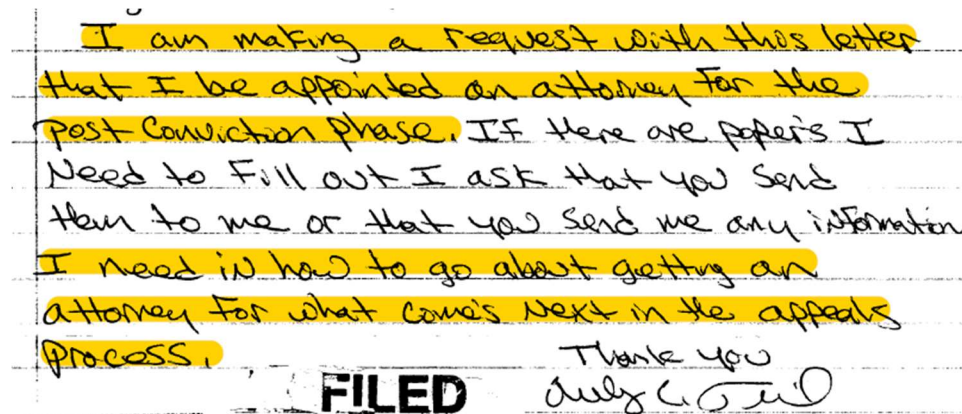 I am making a request with this letter
that I be appointed an attorney For the
post Conviction phase. IF there are paper's I
Need to Fill out I ask that you Send
them to me or that you Send me any information
I need in how to go about getting an
attorney For what come's Next in the appeals
process.
Thank you
FILED